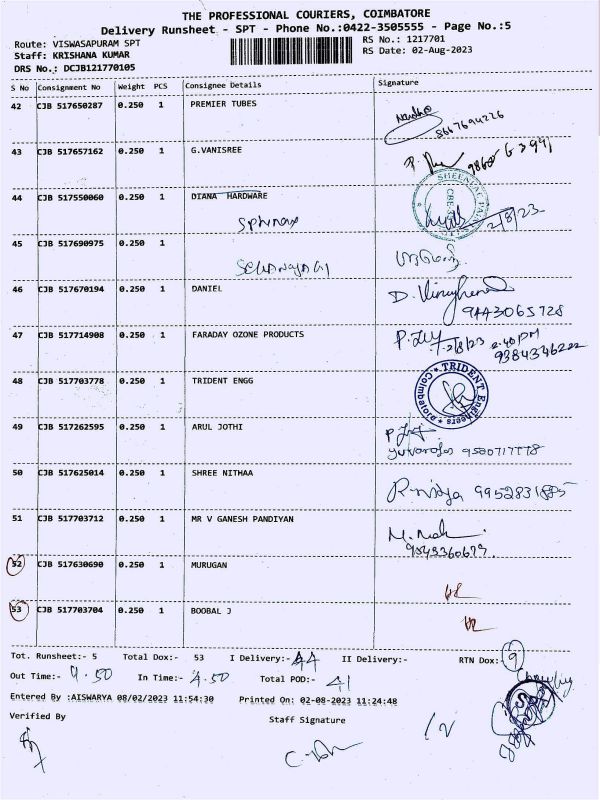 THE PROFESSIONAL COURIERS, COIMBATORE
Delivery Runsheet - SPT - Phone No.:0422-3505555 - Page No.:5
Route: VISWASAPURAM SPT
RS No.: 1217701
Staff: KRISHANA KUMAR
RS Date: 02-Aug-2023
DRS No.: DCJB121770105
S No Consignment No Weight PCS Consignee Details Signature
42 CJB 517650287 0.250 1 PREMIER TUBES
8667694226
43 CJB 517657162 0.250 1 G.VANISREE
44 CJB 517550060 0.250 1 DIANA HARDWARE
2/8/23
45 CJB 517690975 0.250 1
46 CJB 517670194 0.250 1 DANIEL
9443065728
47 CJB 517714908 0.250 1 FARADAY OZONE PRODUCTS
2/8/23 2.40 PM
9384346222
48 CJB 517703778 0.250 1 TRIDENT ENGG
TRIDENT Engineers Coimbatore
49 CJB 517262595 0.250 1 ARUL JOTHI
50 CJB 517625014 0.250 1 SHREE NITHAA
R. nidya 9952831885
51 CJB 517703712 0.250 1 MR V GANESH PANDIYAN
52 CJB 517630690 0.250 1 MURUGAN
53 CJB 517703704 0.250 1 BOOBAL J
Tot. Runsheet:- 5 Total Dox:- 53 I Delivery:- 44 II Delivery:- RTN Dox:- 9
Out Time:- 9.50 In Time:- 4.50 Total POD:- 41
Entered By :AISWARYA 08/02/2023 11:54:30 Printed On: 02-08-2023 11:24:48
Verified By Staff Signature